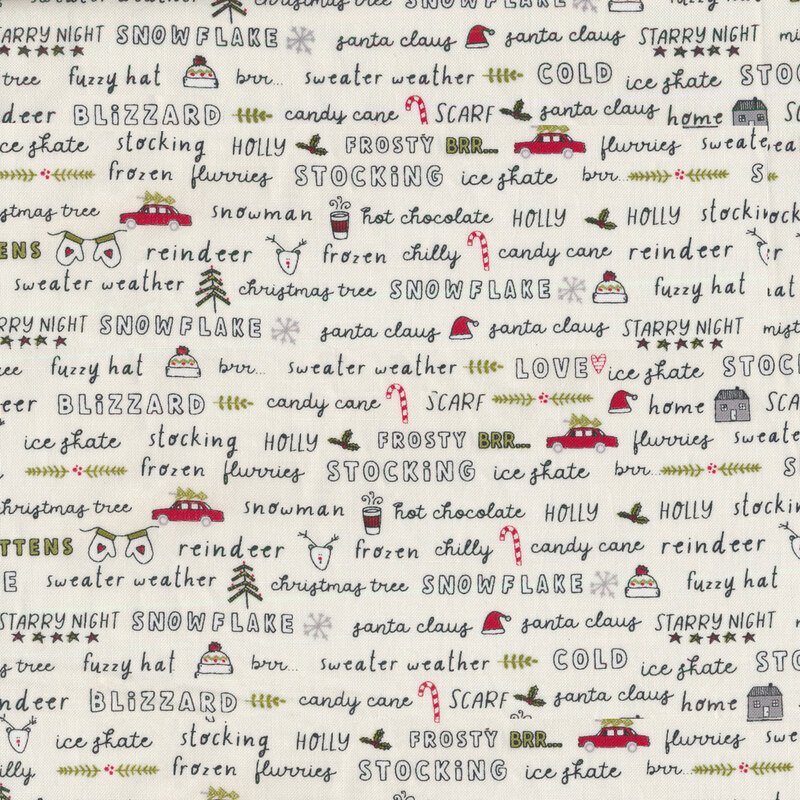 christmas tree SNOWFLAKE
STARRY NIGHT SNOWFLAKE santa claus santa claus STARRY NIGHT mis
tree fuzzy hat brr... sweater weather COLD ice skate STOC
deer BLiZZARD candy cane SCARF santa claus home SC
ice skate stocking HOLLY FROSTY BRR... flurries sweate
frozen flurries STOCKiNG ice skate brr... S
istmas tree snowman hot chocolate HOLLY HOLLY stockin ock
TENS reindeer frozen chilly candy cane reindeer r
sweater weather christmas tree SNOWFLAKE fuzzy hat at
RRY NIGHT SNOWFLAKE santa claus santa claus STARRY NIGHT mist
ee fuzzy hat brr... sweater weather LOVE ice skate STOC
eer BLiZZARD candy cane SCARF home SCA
ice skate stocking HOLLY FROSTY BRR... flurries sweate
frozen flurries STOCKiNG ice skate brr... S
christmas tree snowman hot chocolate HOLLY HOLLY stockin
TTENS reindeer frozen chilly candy cane reindeer
E sweater weather christmas tree SNOWFLAKE fuzzy hat
STARRY NIGHT SNOWFLAKE santa claus santa claus STARRY NIGHT m
s tree fuzzy hat brr... sweater weather COLD ice skate STO
indeer BLiZZARD candy cane SCARF santa claus home S
ice skate stocking HOLLY FROSTY BRR... flurries swe
illy frozen flurries STOCKiNG ice skate brr...